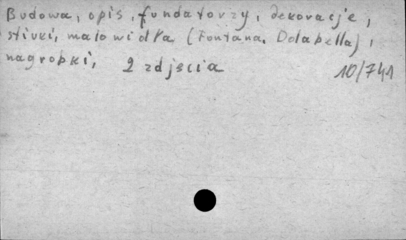 Budowa, opis, fundatorzy, dekoracje,
stiuki, malowidła (Fontana, Dolabella),
nagrobki, 2 zdjęcia 10/741